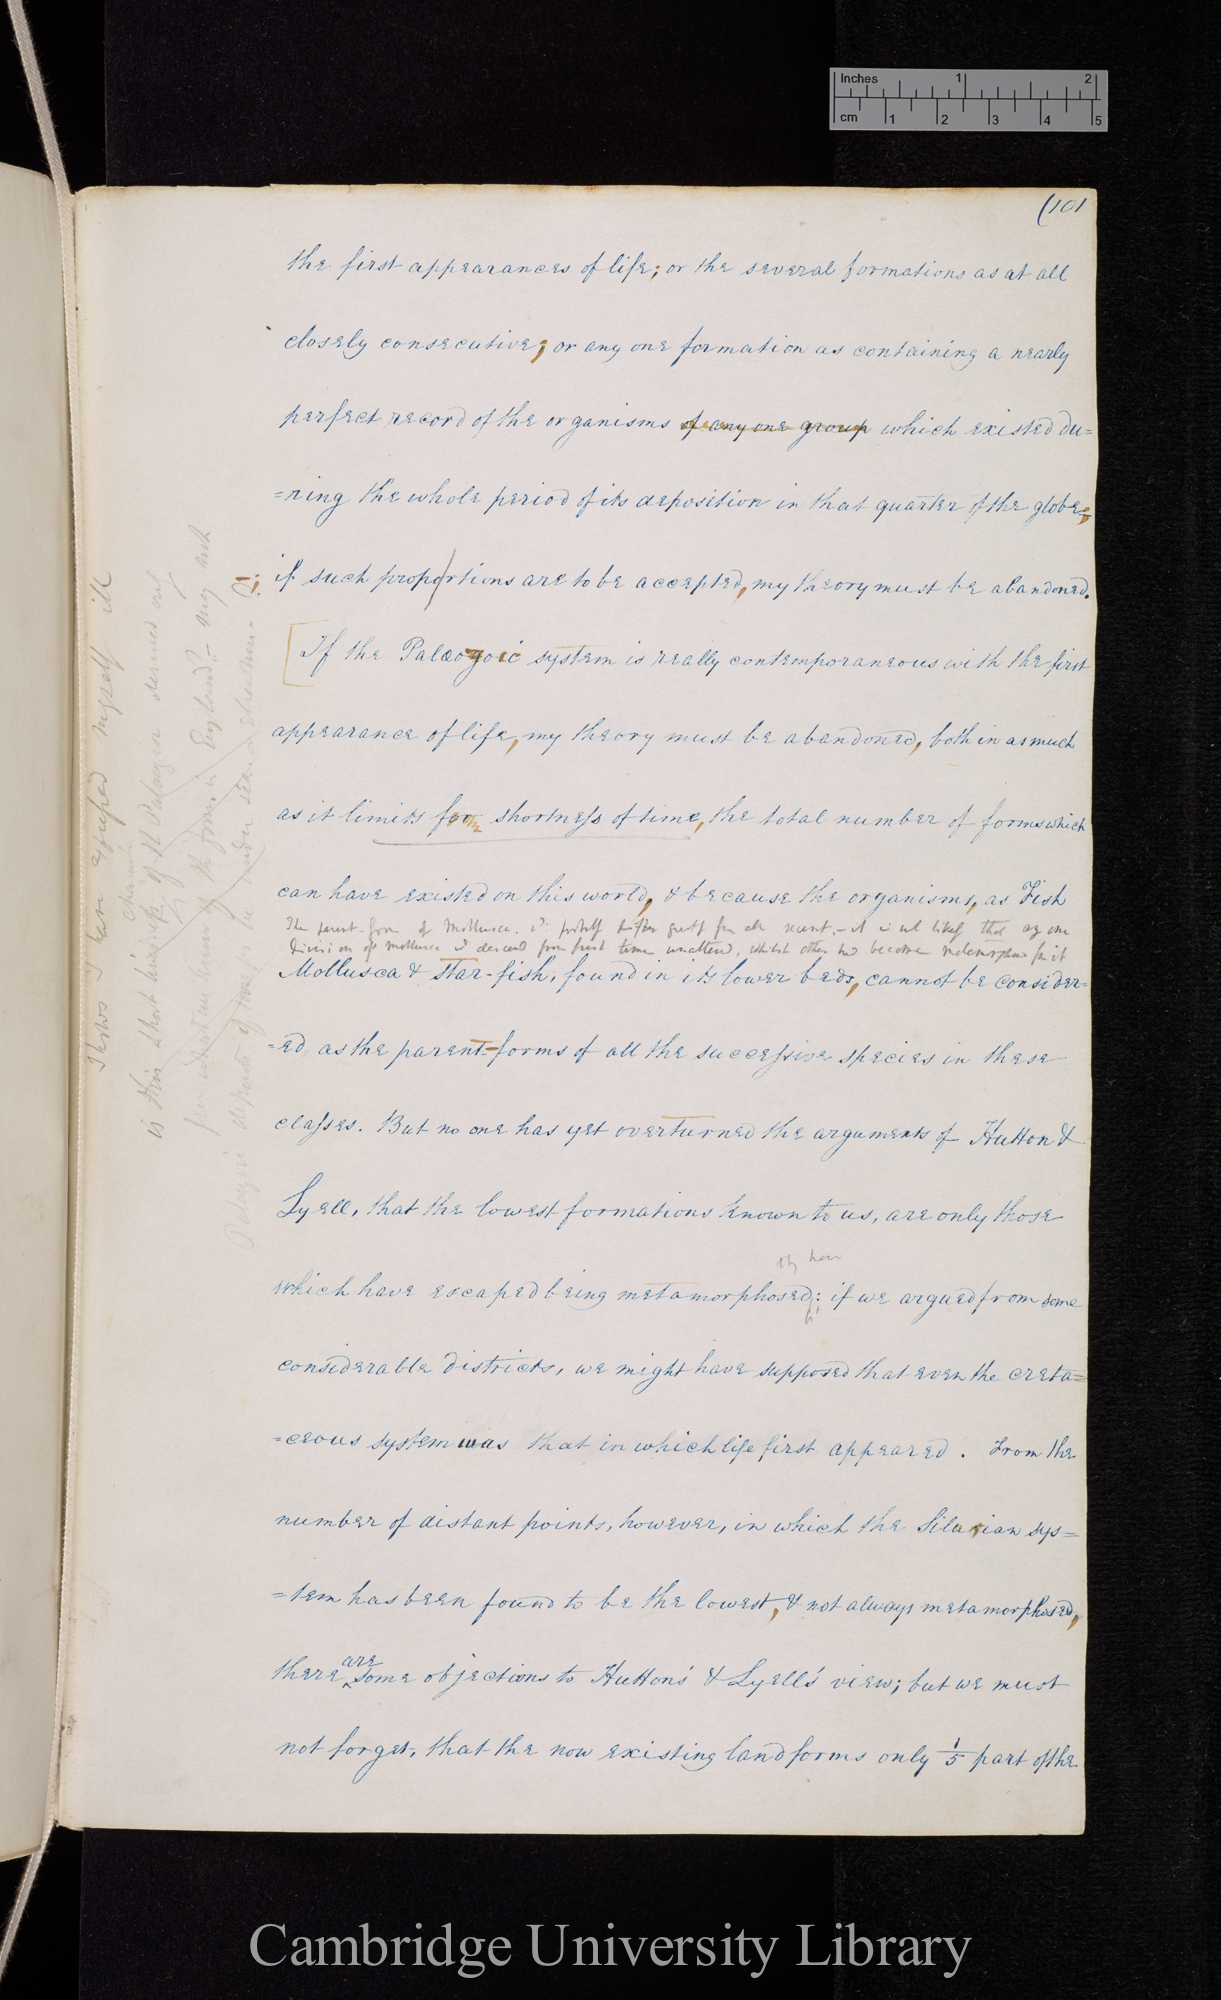 Inches 1 2
cm 1 2 3 4 5
(101
the first appearances of life; or the several formations as at all
closely consecutive; or any one formation as containing a nearly
perfect record of the organisms of any one group which existed du=
=ring the whole period of its deposition in that quarter of the globe;
if such proportions are to be accepted, my theory must be abandoned.
If the Palæozoic system is really contemporaneous with the first
appearance of life, my theory must be abandoned, both in as much
as it limits from shortness of time, the total number of forms which
can have existed on this world, & because the organisms, as Fish
The parent-form of Mollusca wd. probably differ greatly from all recent,— it is not likely that any one
division of mollusca wd descend from first time unaltered, whilst others had become metamorphosed from it
Mollusca & star-fish, found in its lower beds, cannot be consider=
=ed as the parent-forms of all the successive species in these
classes. But no one has yet overturned the arguments of Hutton &
Lyell, that the lowest formations known to us, are only those
they have
which have escaped being metamorphosed; if we argued from some
considerable districts, we might have supposed that even the creta=
=ceous system was that in which life first appeared. From the
number of distant points, however, in which the Silurian sys=
=tem has been found to be the lowest, & not always metamorphosed,
are
there some objections to Hutton's & Lyell's view; but we must
not forget, that the now existing land forms only 1/5 part of the
Shows I have expressed myself ill
chance
is this
Palæozoic
Cambridge University Library